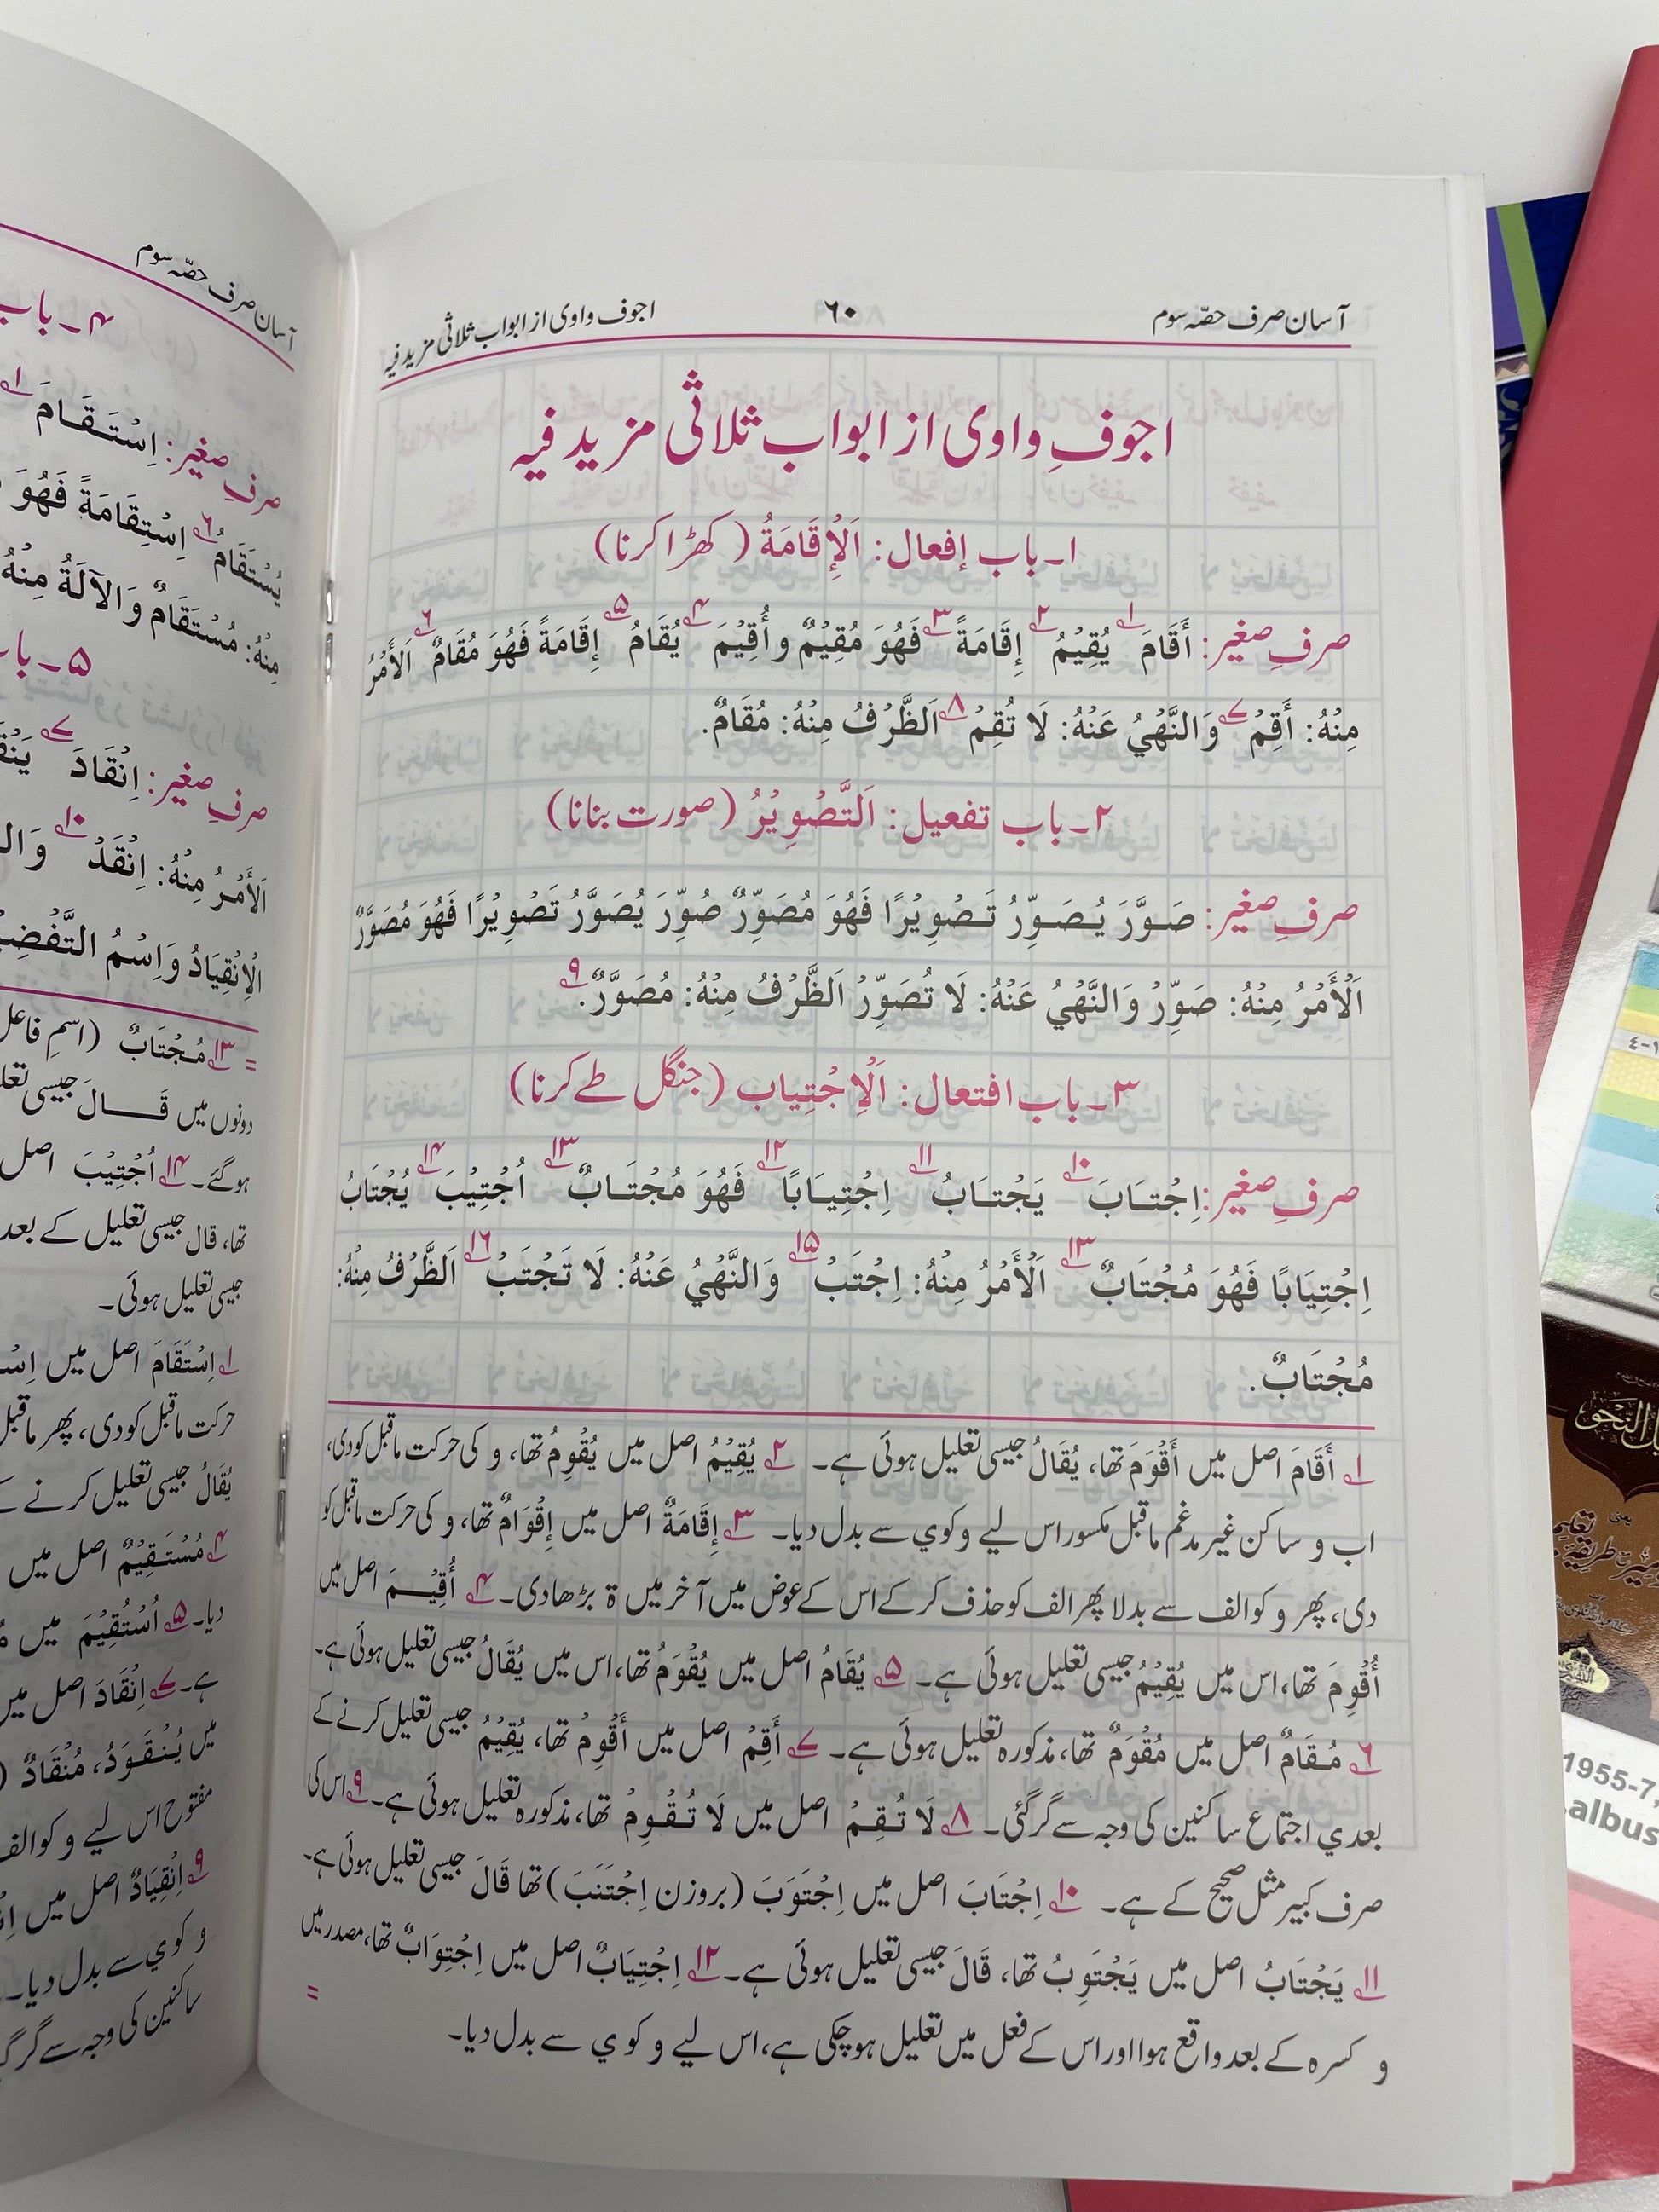 آسان صرف حصّہ سوم
۶۰
اجوف واوی از ابواب ثلاثی مزید فیہ
اجوفِ واوی از ابواب ثلاثی مزید فیہ
۱۔ باب إفعال: اَلْإِقَامَةُ (کھڑا کرنا)
صرفِ صغیر: أَقَامَ ۱ يُقِيْمُ ۲ إِقَامَةً ۳ فَهُوَ مُقِيْمٌ و أُقِيْمَ ۴ يُقَامُ ۵ إِقَامَةً فَهُوَ مُقَامٌ ۶ اَلْأَمْرُ
مِنْهُ: أَقِمْ ۷ وَالنَّهْيُ عَنْهُ: لَا تُقِمْ ۸ اَلظَّرْفُ مِنْهُ: مُقَامٌ.
۲۔ باب تفعیل: اَلتَّصْوِيْرُ (صورت بنانا)
صرفِ صغیر: صَوَّرَ يُصَوِّرُ تَصْوِيْرًا فَهُوَ مُصَوِّرٌ صُوِّرَ يُصَوَّرُ تَصْوِيْرًا فَهُوَ مُصَوَّرٌ
اَلْأَمْرُ مِنْهُ: صَوِّرْ وَالنَّهْيُ عَنْهُ: لَا تُصَوِّرْ اَلظَّرْفُ مِنْهُ: مُصَوَّرٌ ۹.
۳۔ باب افتعال: اَلْاِجْتِيَاب (جنگل طے کرنا)
صرفِ صغیر: اِجْتَابَ ۱۰ يَجْتَابُ ۱۱ اِجْتِيَابًا ۱۲ فَهُوَ مُجْتَابٌ ۱۳ اُجْتِيْبَ ۱۴ يُجْتَابُ
اِجْتِيَابًا فَهُوَ مُجْتَابٌ ۱۳ اَلْأَمْرُ مِنْهُ: اِجْتَبْ ۱۵ وَالنَّهْيُ عَنْهُ: لَا تَجْتَبْ ۱۶ اَلظَّرْفُ مِنْهُ:
مُجْتَابٌ.
۱ أَقَامَ اصل میں أَقْوَمَ تھا، يُقَالُ جیسی تعلیل ہوئی ہے۔ ۲ يُقِيْمُ اصل میں يُقْوِمُ تھا، و کی حرکت ماقبل کو دی،
اب و ساکن غیر مدغم ماقبل مکسور اس لیے و کو ي سے بدل دیا۔ ۳ إِقَامَةٌ اصل میں إِقْوَامٌ تھا، و کی حرکت ماقبل کو
دی، پھر و کو الف سے بدلا پھر الف کو حذف کر کے اس کے عوض میں آخر میں ة بڑھا دی۔ ۴ أُقِيْمَ اصل میں
أُقْوِمَ تھا، اس میں يُقِيْمُ جیسی تعلیل ہوئی ہے۔ ۵ يُقَامُ اصل میں يُقْوَمُ تھا، اس میں يُقَالُ جیسی تعلیل ہوئی ہے۔
۶ مُقَامٌ اصل میں مُقْوَمٌ تھا، مذکورہ تعلیل ہوئی ہے۔ ۷ أَقِمْ اصل میں أَقْوِمْ تھا، يُقِيْمُ جیسی تعلیل کرنے کے
بعد ي اجتماع ساکنین کی وجہ سے گر گئی۔ ۸ لَا تُقِمْ اصل میں لَا تُقْوِمْ تھا، مذکورہ تعلیل ہوئی ہے۔ ۹ اس کی
صرف کبیر مثل صحیح کے ہے۔ ۱۰ اِجْتَابَ اصل میں اِجْتَوَبَ (بروزن اِجْتَنَبَ) تھا قَالَ جیسی تعلیل ہوئی ہے۔
۱۱ يَجْتَابُ اصل میں يَجْتَوِبُ تھا، قَالَ جیسی تعلیل ہوئی ہے۔ ۱۲ اِجْتِيَابٌ اصل میں اِجْتِوَابٌ تھا، مصدر میں
و کسرہ کے بعد واقع ہوا اور اس کے فعل میں تعلیل ہو چکی ہے، اس لیے و کو ي سے بدل دیا۔ =
آسان صرف حصّہ سوم
صرفِ صغیر: اِسْتَقَامَ ۱
يُسْتَقَامُ ۶ اِسْتِقَامَةً فَهُوَ
مِنْهُ: مُسْتَقَامٌ وَالْآلَةُ مِنْهُ
صرفِ صغیر: اِنْقَادَ ۷
اَلْأَمْرُ مِنْهُ: اِنْقَدْ ۱۰
اَلْاِنْقِيَادُ وَاِسْمُ
= ۱۳ مُجْتَابٌ (اسمِ فاعل
دونوں میں قَالَ جیسی
ہو گئے۔ ۱۴ اُجْتِيْبَ اصل
تھا، قال جیسی تعلیل کے بعد
جیسی تعلیل ہوئی۔
۱ اِسْتَقَامَ اصل میں
حرکت ماقبل کو دی، پھر ماقبل
يُقَالُ جیسی تعلیل کرنے
۴ مُسْتَقِيْمٌ اصل میں
دیا۔ ۵ اُسْتُقِيْمَ میں
ہے۔ ۷ اِنْقَادَ اصل میں
میں يُنْقَوَدُ، مُنْقَادٌ
مفتوح اس لیے و کو الف
۹ اِنْقِيَادٌ اصل میں
و کو ي سے بدل دیا۔
ساکنین کی وجہ سے گر
1955-7,
albus